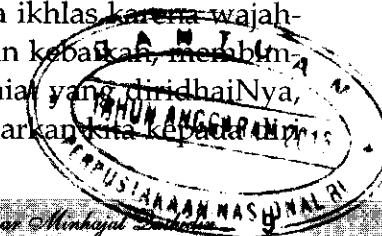 ikhlas karena wajah-
n kebaikan, membim-
yang diridhaiNya,
arkan kita kepada
BANTUAN
TAHUN ANGGARAN
PERPUSTAKAAN NASIONAL RI
ar Minhajul
9